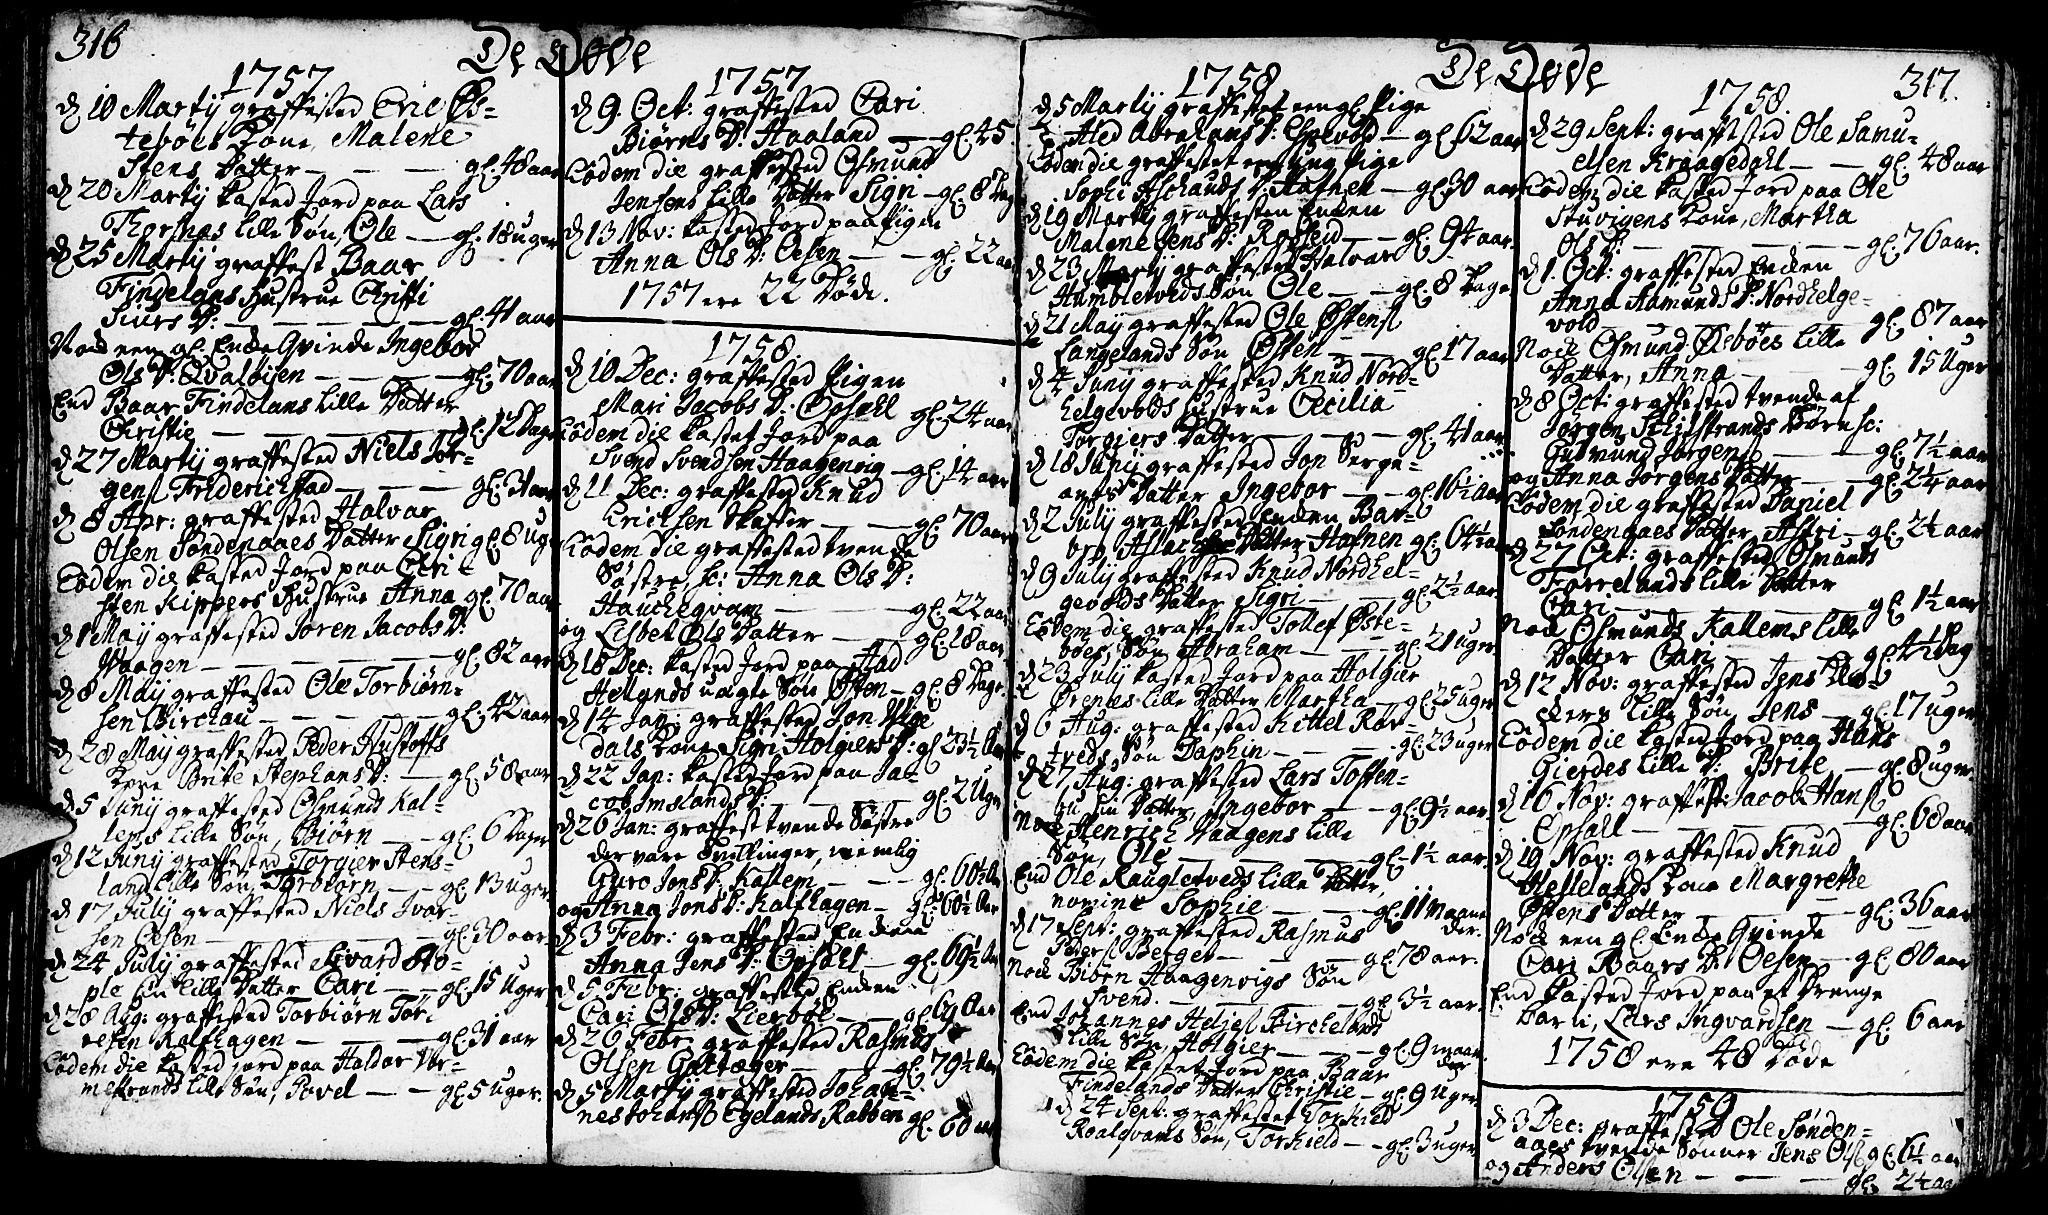 316
De Døde
1757
d 10 Martij graffested Eric Øs-
tebøes Kone, Malene
Stens Datter — — — gl. 48 aar
d 20 Martij Kasted Jord paa Lars
Thorsnæs lille Søn, Ole — gl. 18 uger
d 25 Martij graffest Baar
Findelans Hustrue Christi
Siurs D: — — — gl. 41 aar
Nock een gl. Enke Qvinde Ingebor
Ols D: Qvaløisen — — — gl. 70 aar
End Baar Findelans lille Datter
Christie — — — gl. 12 Dage
d 27 Martij graffested Niels Jør-
gens. Friderichstad — — — gl. 31 aar
d 8 Apr: graffested Halvar
Olsen Søndenaaes Datter Sigri gl. 8 uge
Eodem die Kasted Jord paa Cari-
sten Kippers Hustrue Anna gl. 70 aar
d 1 Maij graffested Soren Jacobs D:
Waagen — — — gl. 82 aar
d 8 Maij graffested Ole Torbiørn-
sen Birchau — — — gl. 42 aar
d 28 Maij graffested Peder Hustofts
Kone Brite Stephans D: — gl. 58 aar
d 5 Junij graffested Osmund Kal-
lems lille Søn, Biørn — gl. 6 Dager
d 12 Junij graffested Torgier Stens-
land lille Søn, Torbiørn — gl. 13 uger
d 17 Julij graffested Niels Ivar-
sen Oesen — — — gl. 30 aar
d 24 Julij graffested Sivard Sto-
ple sin lille Datter Cari — gl. 15 Uger
d 28 Aug: graffested Torbiørn Tør-
resen Kalfhagen — — gl. 31 aar
Eodem die Kasted jord paa Haldor Vor-
mestrands lille Søn, Povel — — gl. 5 uger.
1757
d 9. Oct: graffested Cari
Biørns D: Haaland — gl. 45
Eodem die graffested Osmund
Jensens lille Datter Sigri — gl. 8 Dag
d 13 Nov: Kasted Jord paa Pigen
Anna Ols D: Oesen — — gl. 22 aa
1757 ere 22 Døde.
1758
d 10 Dec: graffested Pigen
Mari Jacobs D: Opsahl gl. 24 aar
Eodem die Kastet Jord paa
Svend Svendsen Haagenvig — gl. 14 aar
d 11 Dec: graffested Knud
Ericksen Skaffer — — gl. 70 aar
Eodem die graffested tvende
Søstre, sc: Anna Ols D:
Hauchegvam — — — gl. 22 aar
og Lisbet Ols Datter — — gl. 18 aar
d 18 Dec: Kasted Jord paa Aad
Hetlands uægte Søn Østen — gl. 8 Dage
d 14 Jan: graffested Jon
dals Kone Sigri Holgiers D: gl 23½ Aar
d 22 Jan: Kasted Jord paa Ja-
cob Imslands D: — — — gl. 2 Uger
d 26 Jan: graffest tvende Søstre
der vare Tvillinger, nemlig
Guro Jons D: Kallem — — gl. 60½ Aar
og Anna Jons D: Kalfhagen — gl. 60½ Aar
d 3 Febr: graffested Enken
Anna Jens D: Opsahl — gl. 69½ Aar
d 5 Febr: graffested Enken
Cari Ols D: Lierbøl — — gl. 69 Aar
d 26 Febr: graffested Rasmus
Olsen Galtæger — — gl. 79½ Aar
d 5 Martij graffested Johan-
nes Johans. Egelands Rabben gl. 60 aar
De Døde
317.
1758
d 5 Martij graffestet een gl. Pige
Aled Abrahams D: Espevold — gl. 62 aar
Eodem die graffestet een ung Pige
Sophi Aschauds D: Hafnen — gl 30 aar
d 19 Martij graffesten Enken
Malene Jens D: Ropeid — — gl. 94 aar.
d 23 Martij graffested Halvar
Humbletveds Søn Ole — — gl. 8 Dage
d 21 Maij graffested Ole Østens.
Langelands Søn Østen — — gl. 17 aar
d 4 Junij graffested Knud Nord-
helgevolds Hustrue Cecilia
Torgiers Datter — — — gl. 41 aar
d 18 Junij graffested Jon Serge-
antes Datter Ingebor — — gl. 16½ Aar
d 2 Julij graffested Enken Bar-
bro Aslachs Datter Hafnen gl. 64½ aa
d 9 Julij graffested Knud Nordhel-
gevolds Datter Sigri — — gl 2½ aar.
Eodem die graffested Tollef Øste-
bøes, Søn Abraham — — gl. 21 uger
d 23 Julij Kasted Jord paa Holgier
Ørenæs lille Datter Martha — gl 25 uger
d 6 Aug: graffested Kittel Rør-
tveds Søn Daphin — — — gl. 23 uger
d 27 Aug: graffested Lars Toften-
bu sin Datter Ingebor — — gl. 9½ aar.
Nock Henrich Vaagens lille
Søn, Ole — — — gl. 1½ aar.
End Ole Raugletveds lille Datter,
nomine Sophie — — — gl 11 maane
der.
d 17 Sept: graffested Rasmus
Peders. Berget — — — gl. 78 aar.
Nock Biørn Haagenvigs Søn
Svend. — — — gl 3½ aar.
End Johannes Heljes. Birchelands
lille Søn, Holgier — — — gl. 9 maan
der
Eodem die Kastet Jord paa Baar
Findelands Datter Christie — gl. 9 Uger
d 24 Sept: graffestet Torkield
Roalqvams Søn, Torkield — — gl. 3 uger
1758.
d 29 Sept: graffested Ole Samu-
elsen Kraagedahl — — gl. 48 aar
Eodem die Kasted Jord paa Ole
Stuvigens Kone, Martha
Ols D: — — — gl. 76 aar.
d 1. Oct: graffested Enken
Anna Aamunds D: Nordhelge-
vold — — — gl. 87 aar
Nock Osmund Øebøes lille
Datter, Anna — — — gl. 15 Uger
d 8 Oct: graffested tvende af
Jørgen Schielstrands Børn sc:
Gudmund Jørgens. — — gl. 7½ aar
og Anna Jørgens Datter — — gl. 2¼ aar
Eodem die graffested Daniel
Søndenaaes Datter Astri — gl. 2¼ aar
d 22 Oct: graffested Osmunds
Førrelands lille Datter
Cari — — — gl 1½ aar
Nock Osmunds Kallems lille
Datter Cari — — — gl 4½ Dag
d 12 Nov: graffested Jens
lille Søn, Jens — gl. 17 uger
Eodem die Kasted Jord paa Hans
Gierdes lille D: Brite — gl. 8 uger
d 16 Nov: graffest: Jacob Hans.
Opsall — — — gl. 68 aar
d 19 Nov: graffested Knud
Hesselands Kone Margrethe
Østens Datter — — — gl. 36 aar
Nock een gl. Enke Qvinde
Cari Baars D: Oesen — gl. 80 aar
End Kasted Jord paa et Drenge
barn, Lars Ingvardsen — gl. 6 aar
1758 ere 48 Døde
1759
d 3 Dec: graffested Ole Sønden-
aaes tvende Sønner Jens Ols. gl. 6½ aar
og Anders Olsen — — — gl. 2¼ aa